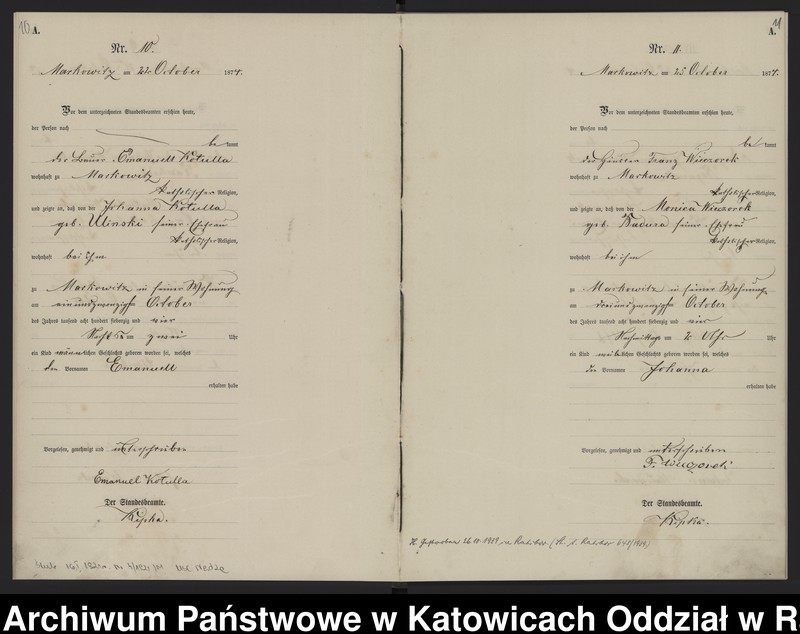 10
A.
Nr. 10.
Markowitz am 22 October 1874.
Vor dem unterzeichneten Standesbeamten erschien heute,
der Person nach
bekannt
der Bauer Emanuell Kotulla
wohnhaft zu Markowitz
katholischer Religion,
und zeigte an, daß von der Johanna Kotulla
geb. Ulinski seiner Ehefrau
katholischer Religion,
wohnhaft bei ihm
zu Markowitz in seiner Wohnung
am einundzwanzigsten October
des Jahres tausend acht hundert siebenzig und vier
Nachts um zwei Uhr
ein Kind männlichen Geschlechts geboren worden sei, welches
den Vornamen Emanuell
erhalten habe
Vorgelesen, genehmigt und unterschrieben
Emanuel Kotulla
Der Standesbeamte.
Kipka.
11
A.
Nr. 11.
Markowitz am 25 October 1874.
Vor dem unterzeichneten Standesbeamten erschien heute,
der Person nach
bekannt
der Häusler Franz Wieczorek
wohnhaft zu Markowitz
katholischer Religion,
und zeigte an, daß von der Monica Wieczorek
geb. Kadura seiner Ehefrau
katholischer Religion,
wohnhaft bei ihm
zu Markowitz in seiner Wohnung
am October
des Jahres tausend acht hundert siebenzig und vier
Nachmittags um Uhr
ein Kind weiblichen Geschlechts geboren worden sei, welches
den Vornamen Johanna
erhalten habe
Vorgelesen, genehmigt und unterschrieben
F. Wieczorek
Der Standesbeamte.
Kipka.
Archiwum Państwowe w Katowicach Oddział w R